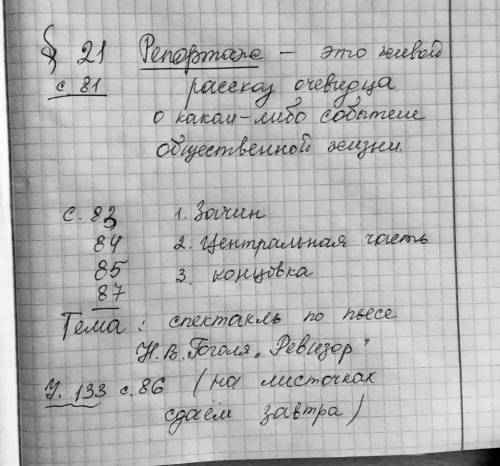 § 21 Репортаж – это живой
с. 81 рассказ очевидца
о каком-либо событии
общественной жизни.
с. 83 1. Зачин
84 2. Центральная часть
85 3. концовка
87
Тема: спектакль по пьесе
Н.В. Гоголя „Ревизор"
У. 133 с. 86 (на листочках
сдаём завтра)